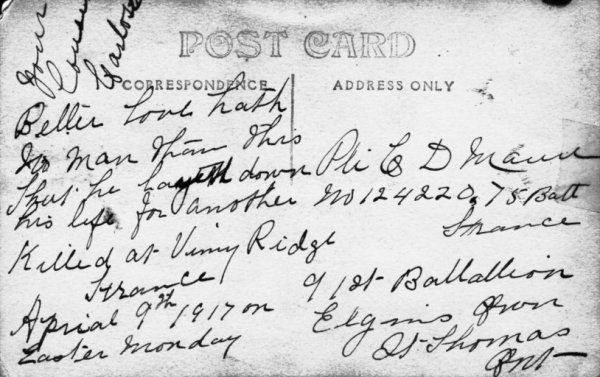 Your
Cousin
POST CARD
CORRESPONDENCE
ADDRESS ONLY
Better Love hath
No man than this
that he layeth down
his life for another
Killed at Vimy Ridge
France
Aprial 9th 1917 on
Easter Monday
Pte C D
No 124220, 75 Batt
France
91st Battallion
Elgins Own
St. Thomas
Ont